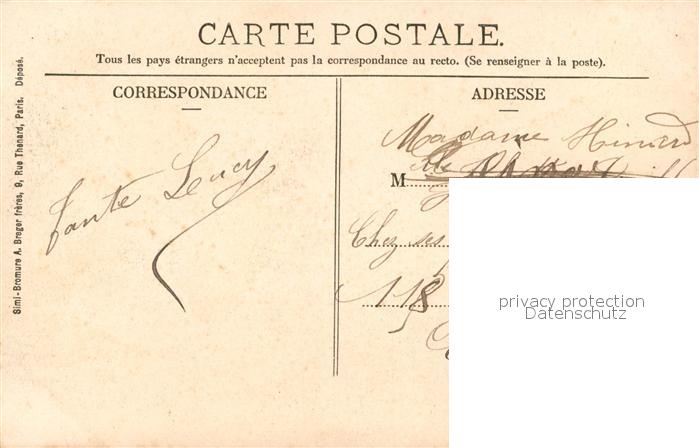 CARTE POSTALE.
Tous les pays étrangers n'acceptent pas la correspondance au recto. (Se renseigner à la poste).
CORRESPONDANCE
Tante Lucy
ADRESSE
Madame
M
Chez ses
118
privacy protection
Datenschutz
Simi-Bromure A. Breger frères, 9, Rue Thenard, Paris. Déposé.